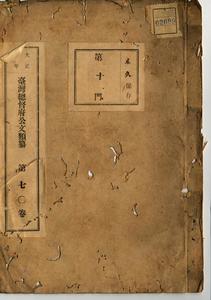 永久保存
第十門
02090
大正 年
臺灣總督府公文類纂
第七〇卷